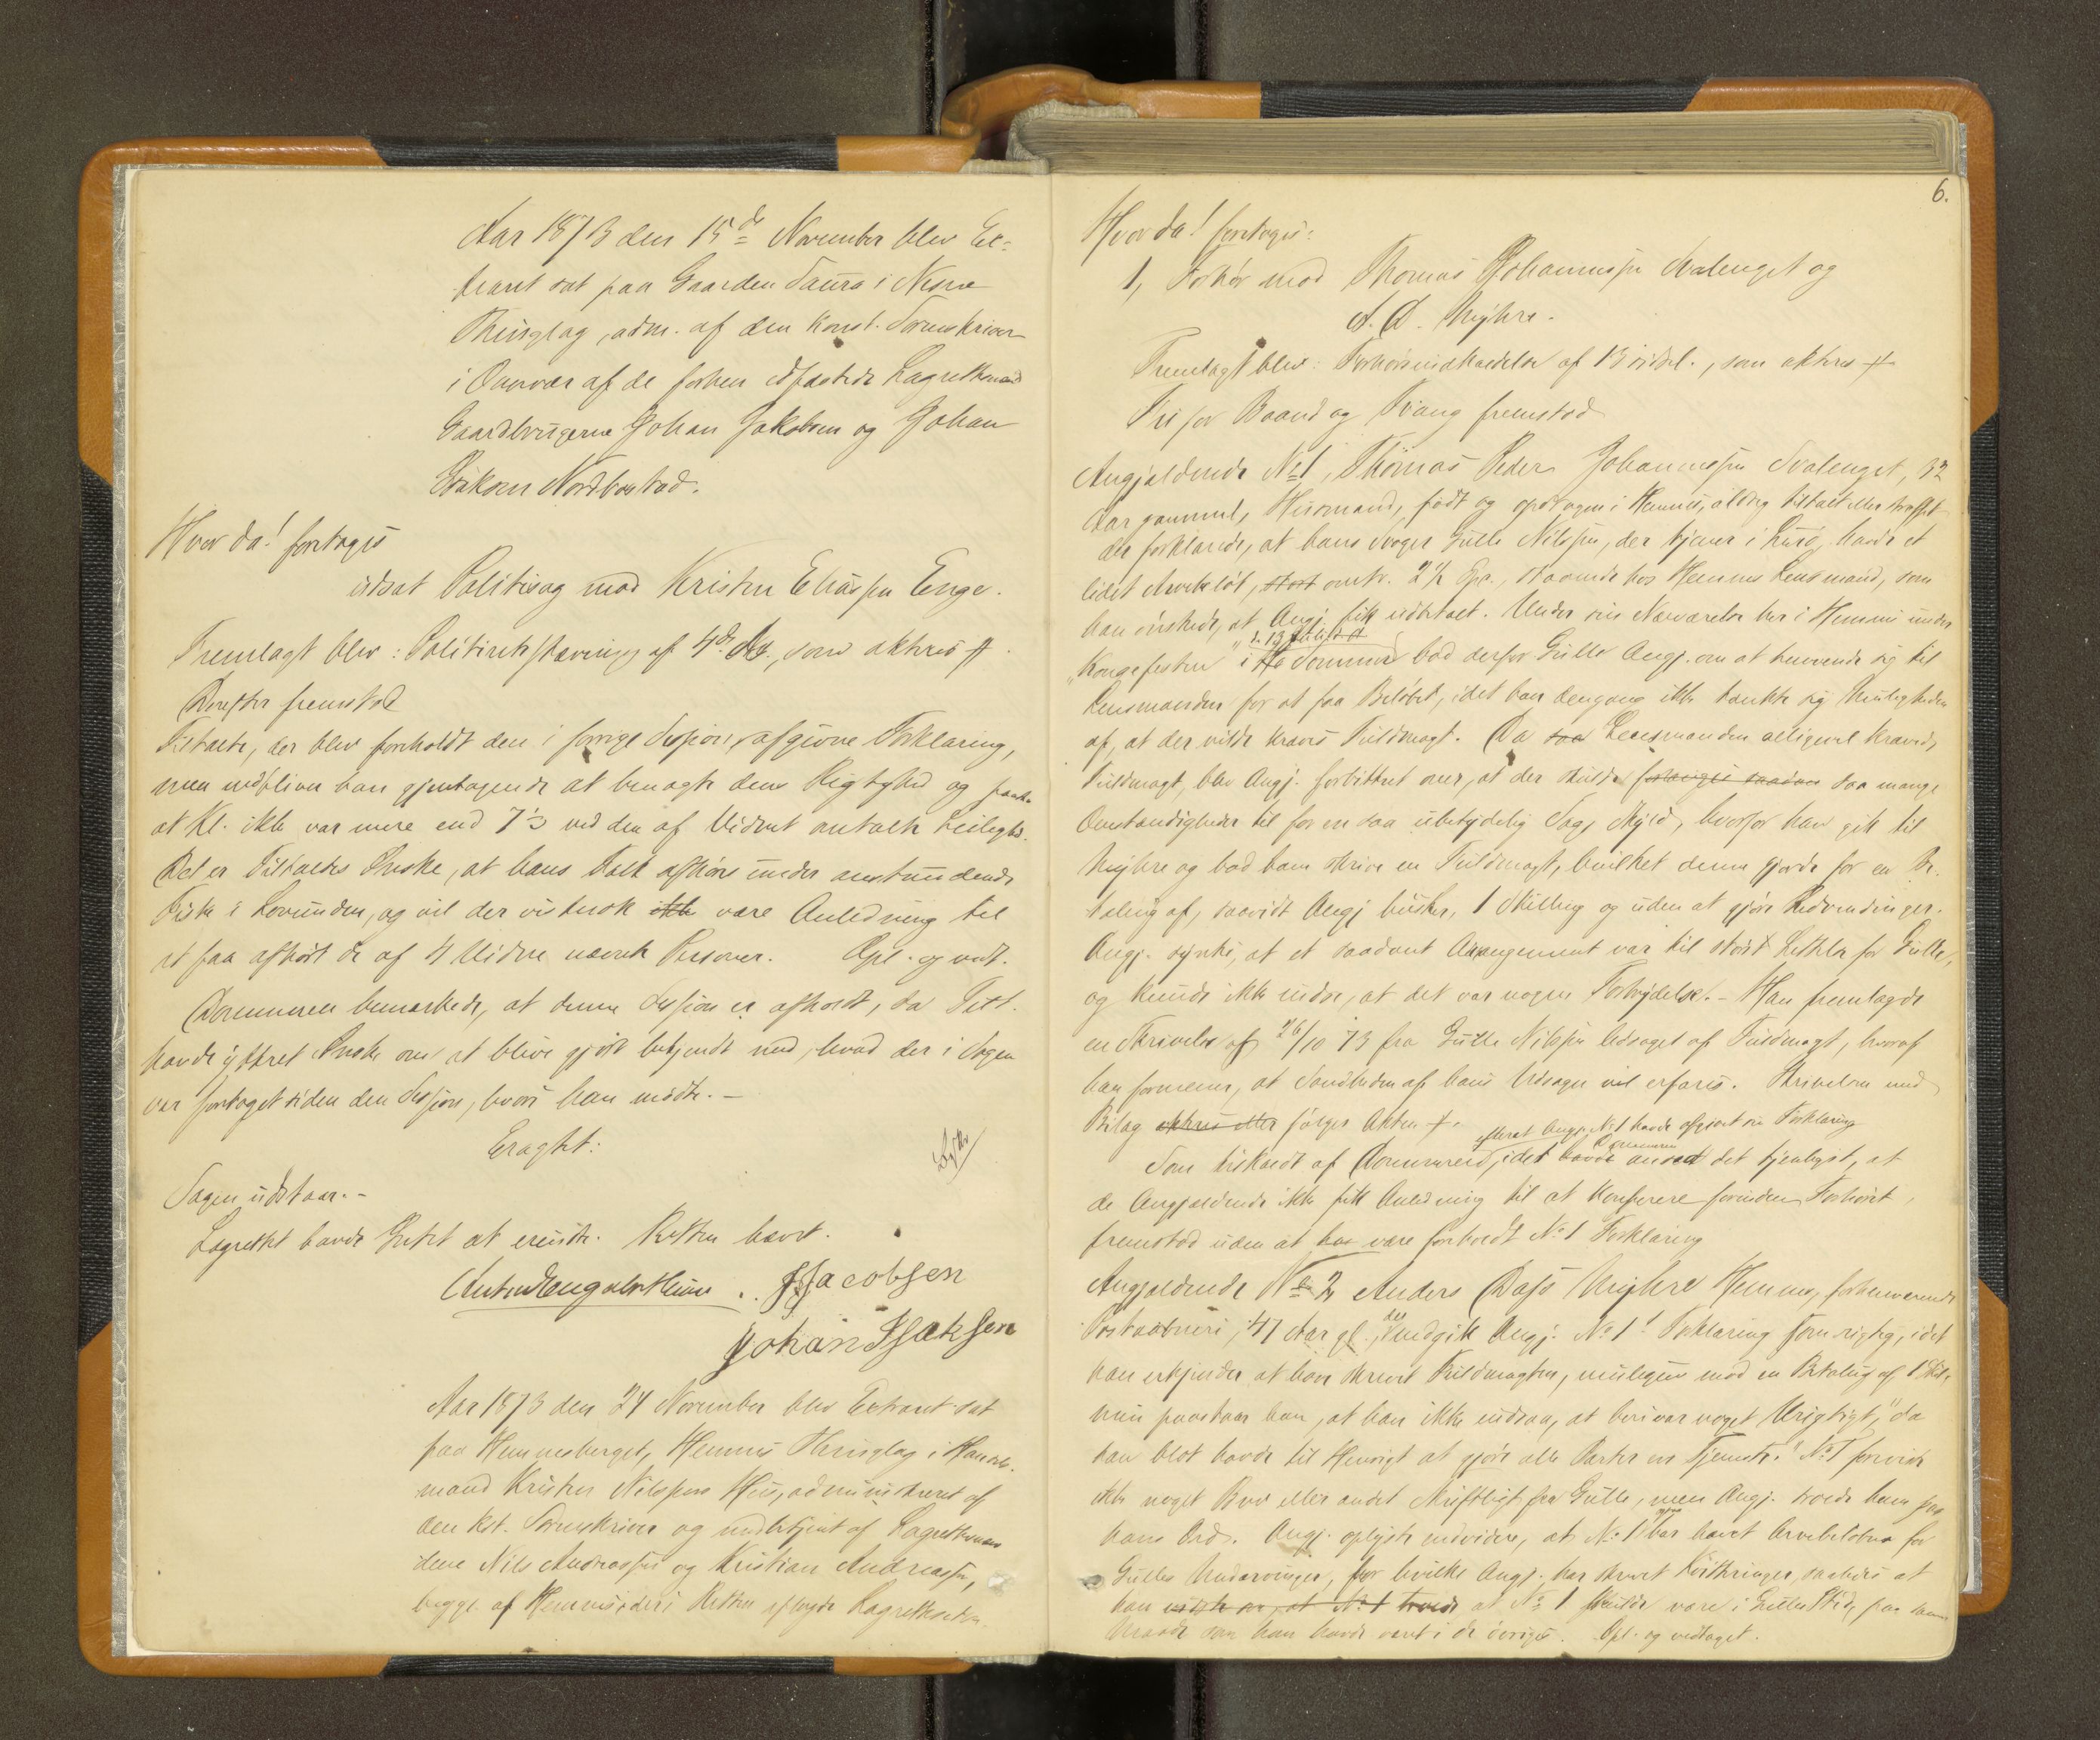 Aar 1873 den 15de November blev Ex-
traret sat paa Gaarden Saura i Nesne
Thinglag, adm. af den Konst. Sorenskriver
i Overvær af de forhen edfæstede Lagrettesmænd
Gaardbrugerne Johan Jakobsen og Johan
Isaksen Nordbostad.
Hvor da! foretoges
udsat Politisag mod Kristen Eliassen Enge.
Fremlagt blev: Politiretsstævning af 4de ds., som akteres #
Derefter fremstod
Tiltalte, der blev foreholdt den i forrige Session afgivne Forklaring,
men vedbliver han gjentagende at benægte dens Rigtighed og paastaa
at Kl. ikke var mere end 7½ ved den af Vidnet omtalte Leilighed.
Det er Tiltaltes Ønske, at hans Folk afhøres under anstundende
Fiske i Lovunden, og vil der vistnok ikke være Anledning til
at faa afhørt de af 4 Vidne nævnte Personer. Opl. og vedt.
Dommeren bemærkede, at denne Session er afholdt, da Tilt.
havde yttret Ønske om at blive gjort bekjendt med, hvad der i Sagen
var foretaget siden den Session, hvori han mødte. –
Eragtet:
Sagen udstaar. –
Lagrettet havde Intet at erindre. Retten hævet.
JJacobsen
Johan Isaksen
Aar 1873 den 24 November blev Extraret sat
paa Hemnesberget, Hemnes Thinglag i Handels-
mand Kristen Nilssens Hus, administreret af
den kst. Sorenskriver og medbetjent af Lagrettesmæn-
dene Nils Andreassen og Kristian Andreassen,
begge af Hemnes, der i Retten aflagde Lagretteseden.
6.
Hvor da! foretoges:
1, Forhør mod Thomas Johannessen Svalenget og
A. D. Myhre.
Fremlagt blev: Forhørsindkaldelse af 13 sidstl., som akteres #
Fri for Baand og Tvang fremstod
Angjældende No 1, Thomas Peder Johannessen Svalenget, 32
Aar gammel, Husmand, født og opdragen i Hemnes, aldrig tiltalt eller straffet
der forklarede, at hans Svoger Gulle Nilssen, der tjener i Lurø, havde et
lidet Arvebeløb, stort omtr. 2½ Spd., staaende hos Hemnes Lensmand, som
han ønskede, at Angj. fik udbetalt. Under sin Nærværelse her i Hemnes under
"Kongefesten" i Sommer bad derfor Gulle Angj. om at henvende sig til
Lensmanden for at faa Beløbet, idet han dengang ikke tænkte sig Muligheden
af, at der vilde kræves Fuldmagt. Da saa Lensmanden alligevel krævede
Fuldmagt, blev Angj. forbittret over, at der skulde forlanges saadan saa mange
Omstændigheder til for en saa ubetydelig Sags Skyld, hvorfor han gik til
Myhre og bad ham skrive en Fuldmagt, hvilket denne gjorde for en Be-
taling af, saavidt Angj husker, 1 Skilling og uden at gjøre Indvendinger.
Angj. syntes, at et saadant Arrangement var til størst Lettelse for Gulle,
og kunde ikke indse, at det var nogen Forbrydelse. – Han fremlagde
en Skrivelse af 26/10 73 fra Gulle Nilssen ledsaget af Fuldmagt, hvoraf
han formener, at Sandheden af hans Udsagn vil erfares. Skrivelsen med
Bilag akteres eller følger Akten #.
efterat Angj. No 1 havde afgivet sin Forklaring
Som tilkaldt af Dommeren, idet Dommeren havde anseet det tjenligst, at
de Angjældende ikke fik Anledning til at konferere forinden Forhøret,
fremstod uden at have være foreholdt No 1 Forklaring
Angjældende No 2, Anders Dass Myhre Hemnes, forhenværende
Postaabneri, 41 Aar gl., der medgik Angj. No 1's Forklaring som rigtig, idet
han erkjender at have skrevet Fuldmagten, muligens mod en Betaling af 1 Skill,
men paastaar han, at han ikke indsaa, at heri var noget Urigtigt, "da
han blot havde til Hensigt at gjøre alle Parter en Tjeneste." No 1 foreviste
ikke noget Brev eller andet Skriftligt fra Gulle, men Angj. troede ham paa
hans Ord. Angj. oplyste endvidere, at No 1 har hævet Arvebeløbene for
Gulles Medarvinger, for hvilke Angj. har skrevet Kvitteringer, saaledes at
han vidste at No 1 troede at No 1 skulde være i Gulles Sted, paa samme
Maade som han havde været i de øvriges. Opl. og vedtaget.